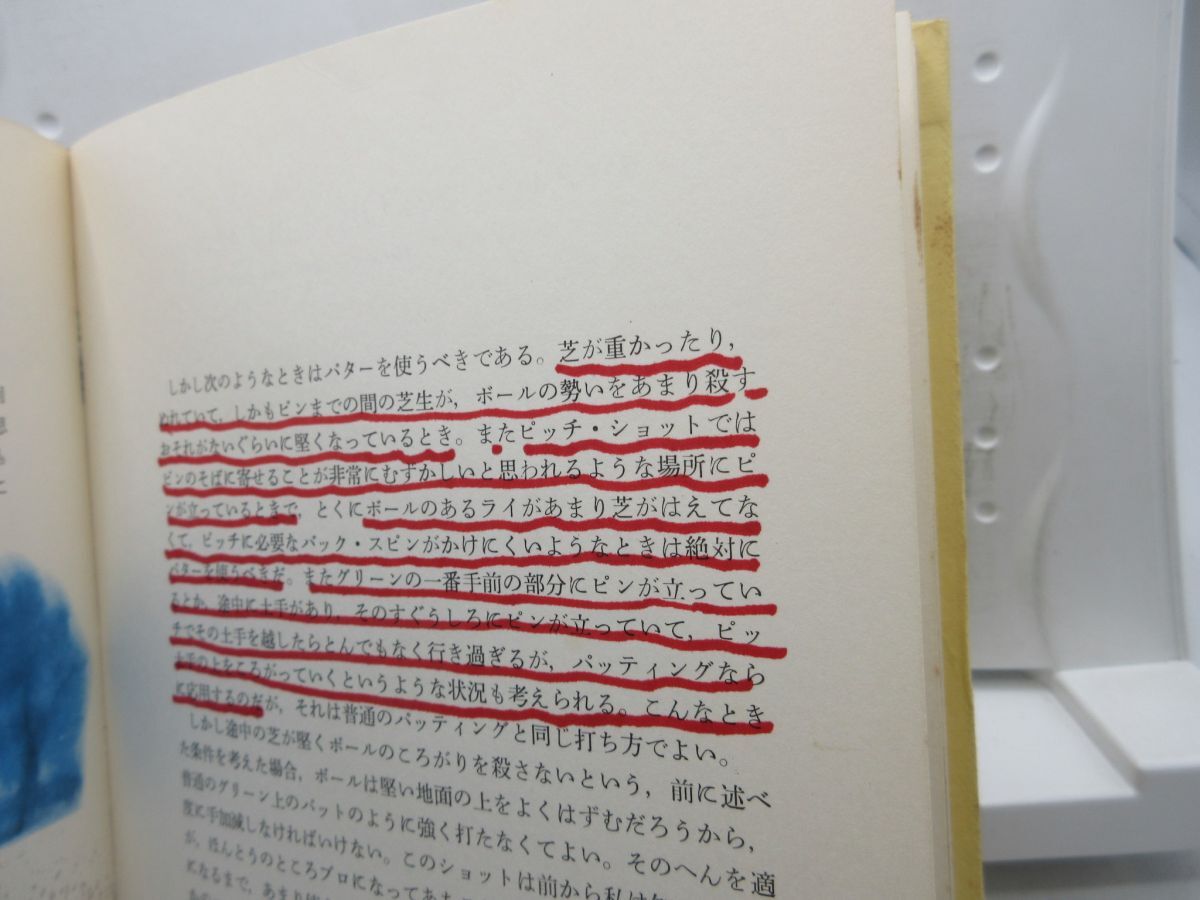 しかし次のようなときはパターを使うべきである。芝が重かったり，
ぬれていて，しかもピンまでの間の芝生が，ボールの勢いをあまり殺す
おそれがないぐらいに堅くなっているとき。またピッチ・ショットでは
ピンのそばに寄せることが非常にむずかしいと思われるような場所にピ
ンが立っているとまで，とくにボールのあるライがあまり芝がはえてな
くて，ピッチに必要なバック・スピンがかけにくいようなときは絶対に
パターを使うべきだ。またグリーンの一番手前の部分にピンが立ってい
るとか，途中に土手があり，そのすぐうしろにピンが立っていて，ピッ
チでその土手を越したらとんでもなく行き過ぎるが，パッティングなら
土手の上をころがっていくというような状況も考えられる。こんなとき
に応用するのだが，それは普通のパッティングと同じ打ち方でよい。
しかし途中の芝が堅くボールのころがりを殺さないという，前に述べ
た条件を考えた場合，ボールは堅い地面の上をよくはずむだろうから，
普通のグリーン上のパットのように強く打たなくてよい。そのへんを適
度に手加減しなければいけない。このショットは前から私は
が，ほんとうのところプロになってあ
になるまで，あまり